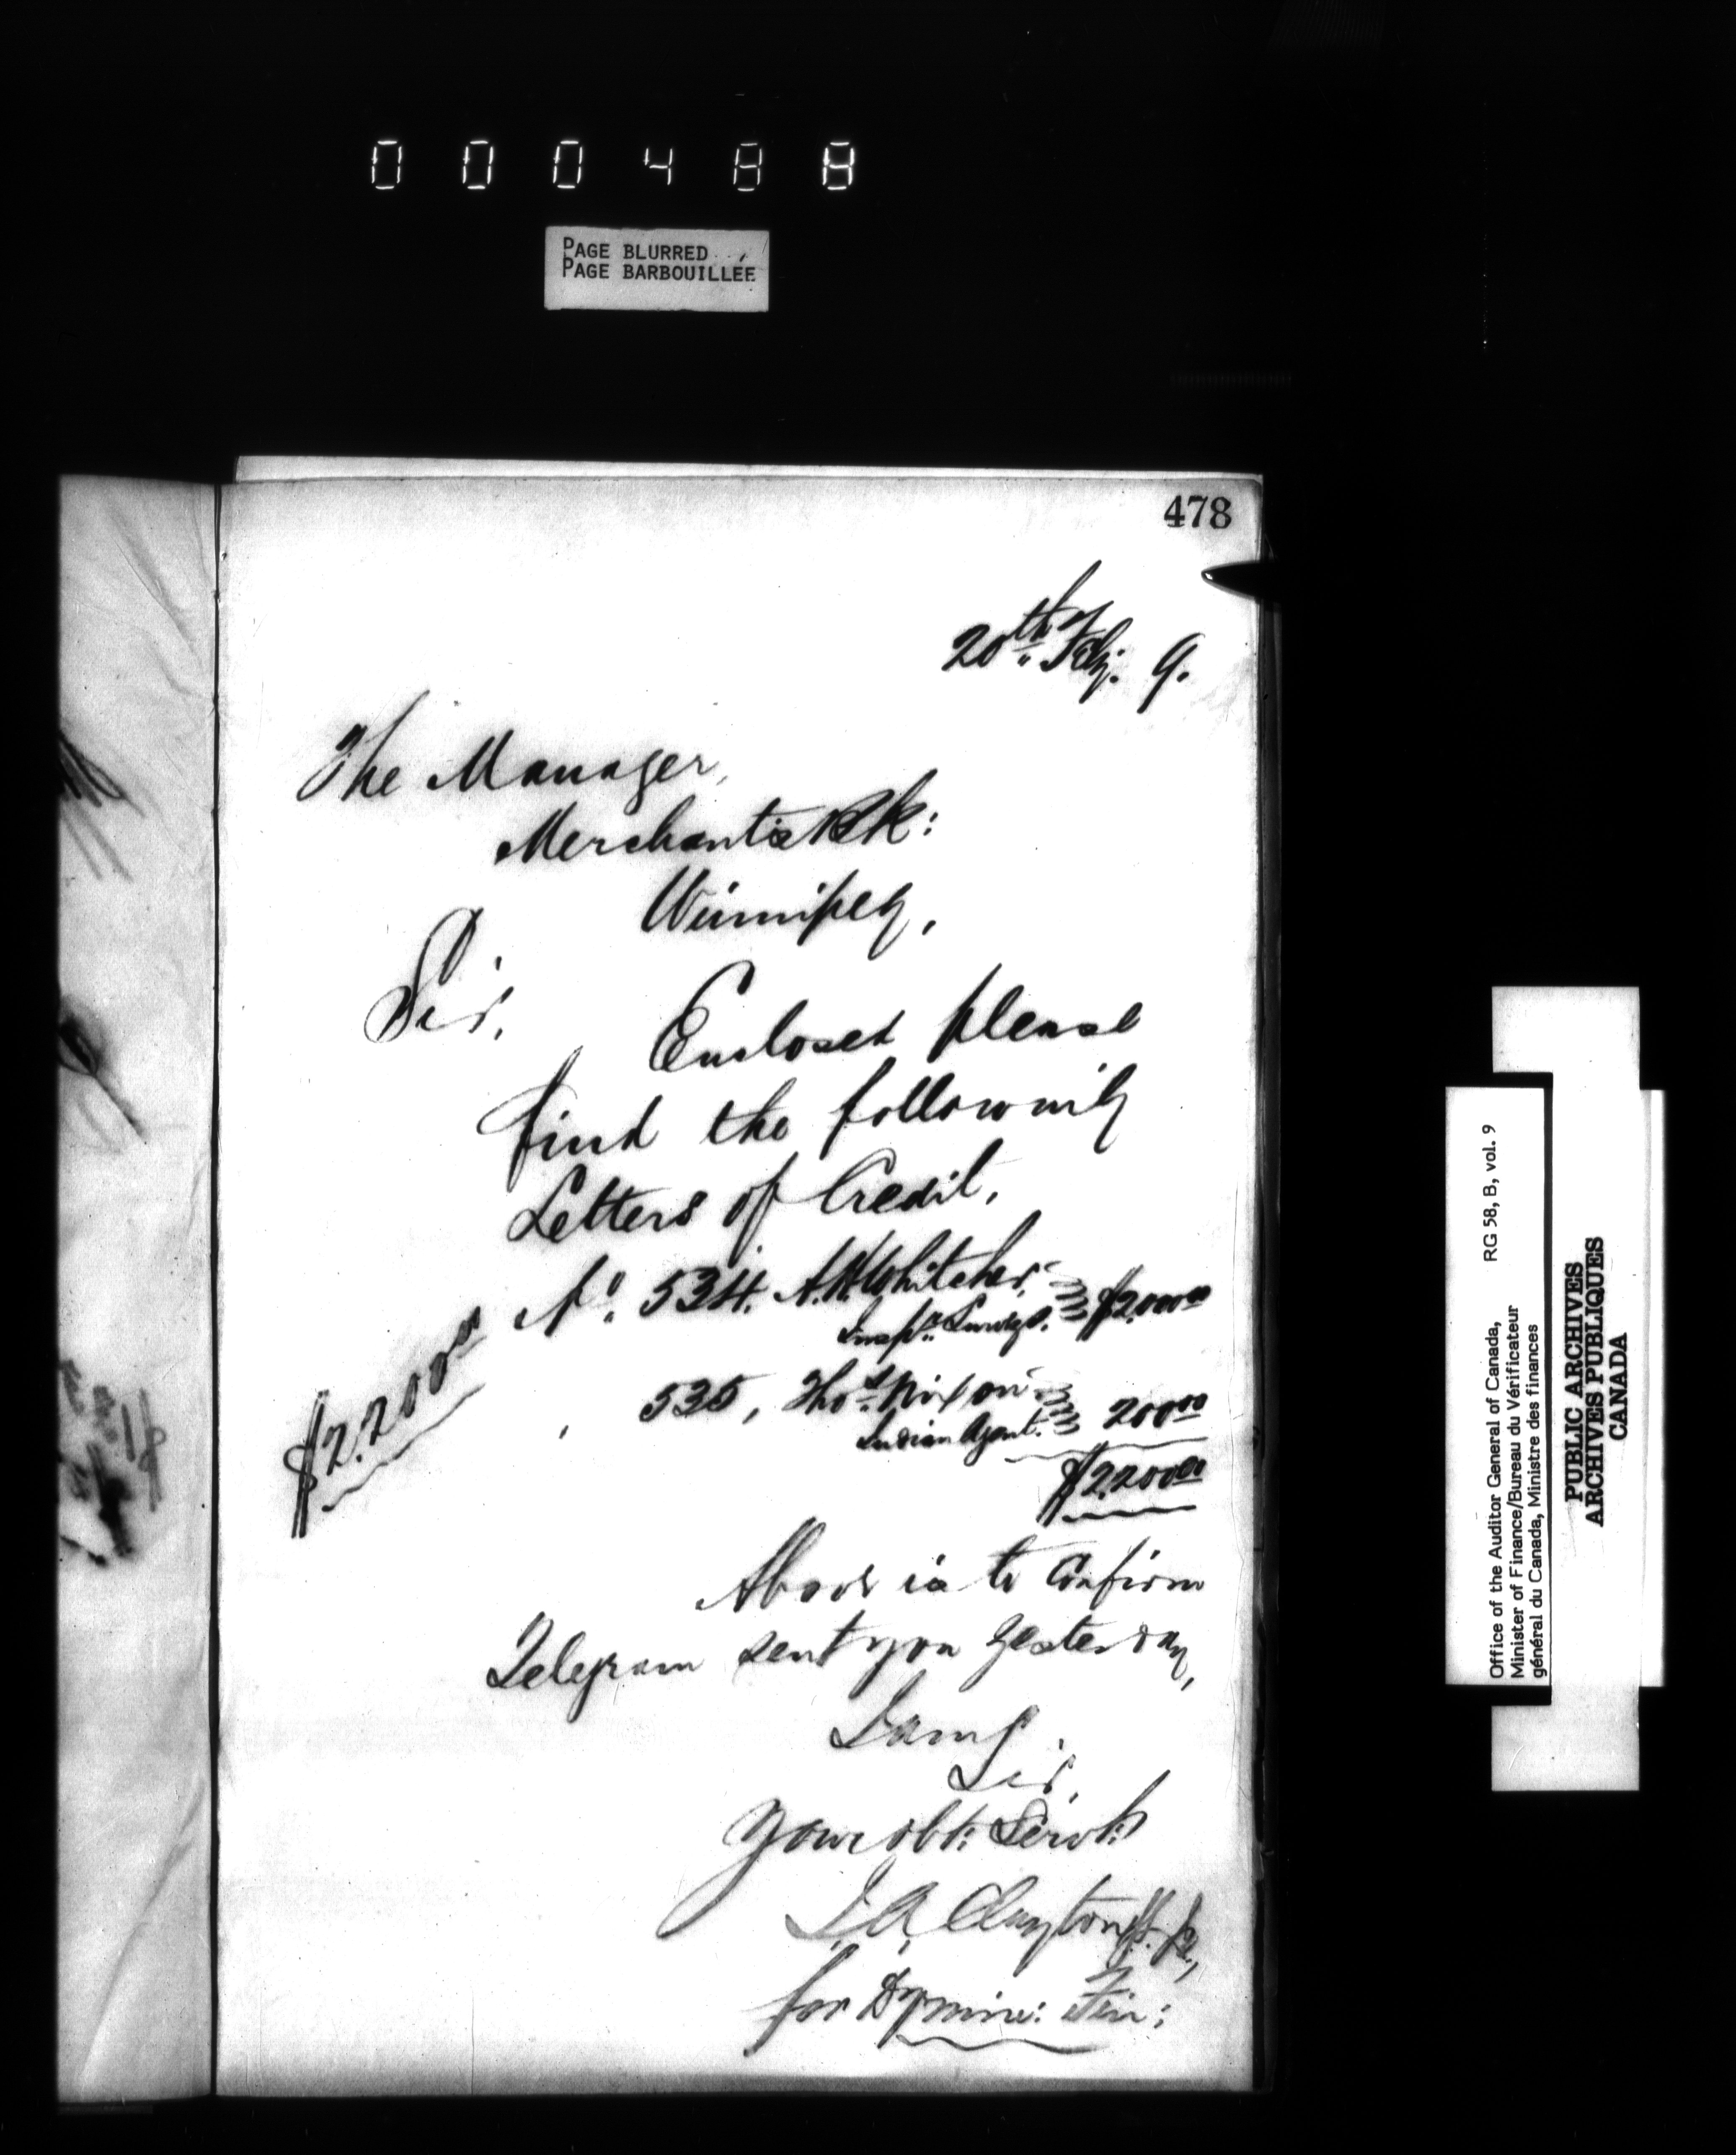 000488
PAGE BLURRED
PAGE BARBOUILLÉE
478
20th Feby. 9.
The Manager,
Merchants Bk:
Winnipeg,
Sir,
Enclosed please
find the following
Letters of Credit,
No. 534. A.H. Whitcher, $2,000.00
Inspr. Survys.
535, Thos. Nixon 200.00
Indian Agent.
$2,200.00
$2,200.00
Above is to Confirm
Telegram sent you yesterday,
I am
Sir,
Your obt: Servt:
for Dy min: Fin:
Office of the Auditor General of Canada, RG 58, B, vol. 9
Minister of Finance/Bureau du Vérificateur
général du Canada, Ministre des finances
PUBLIC ARCHIVES
ARCHIVES PUBLIQUES
CANADA